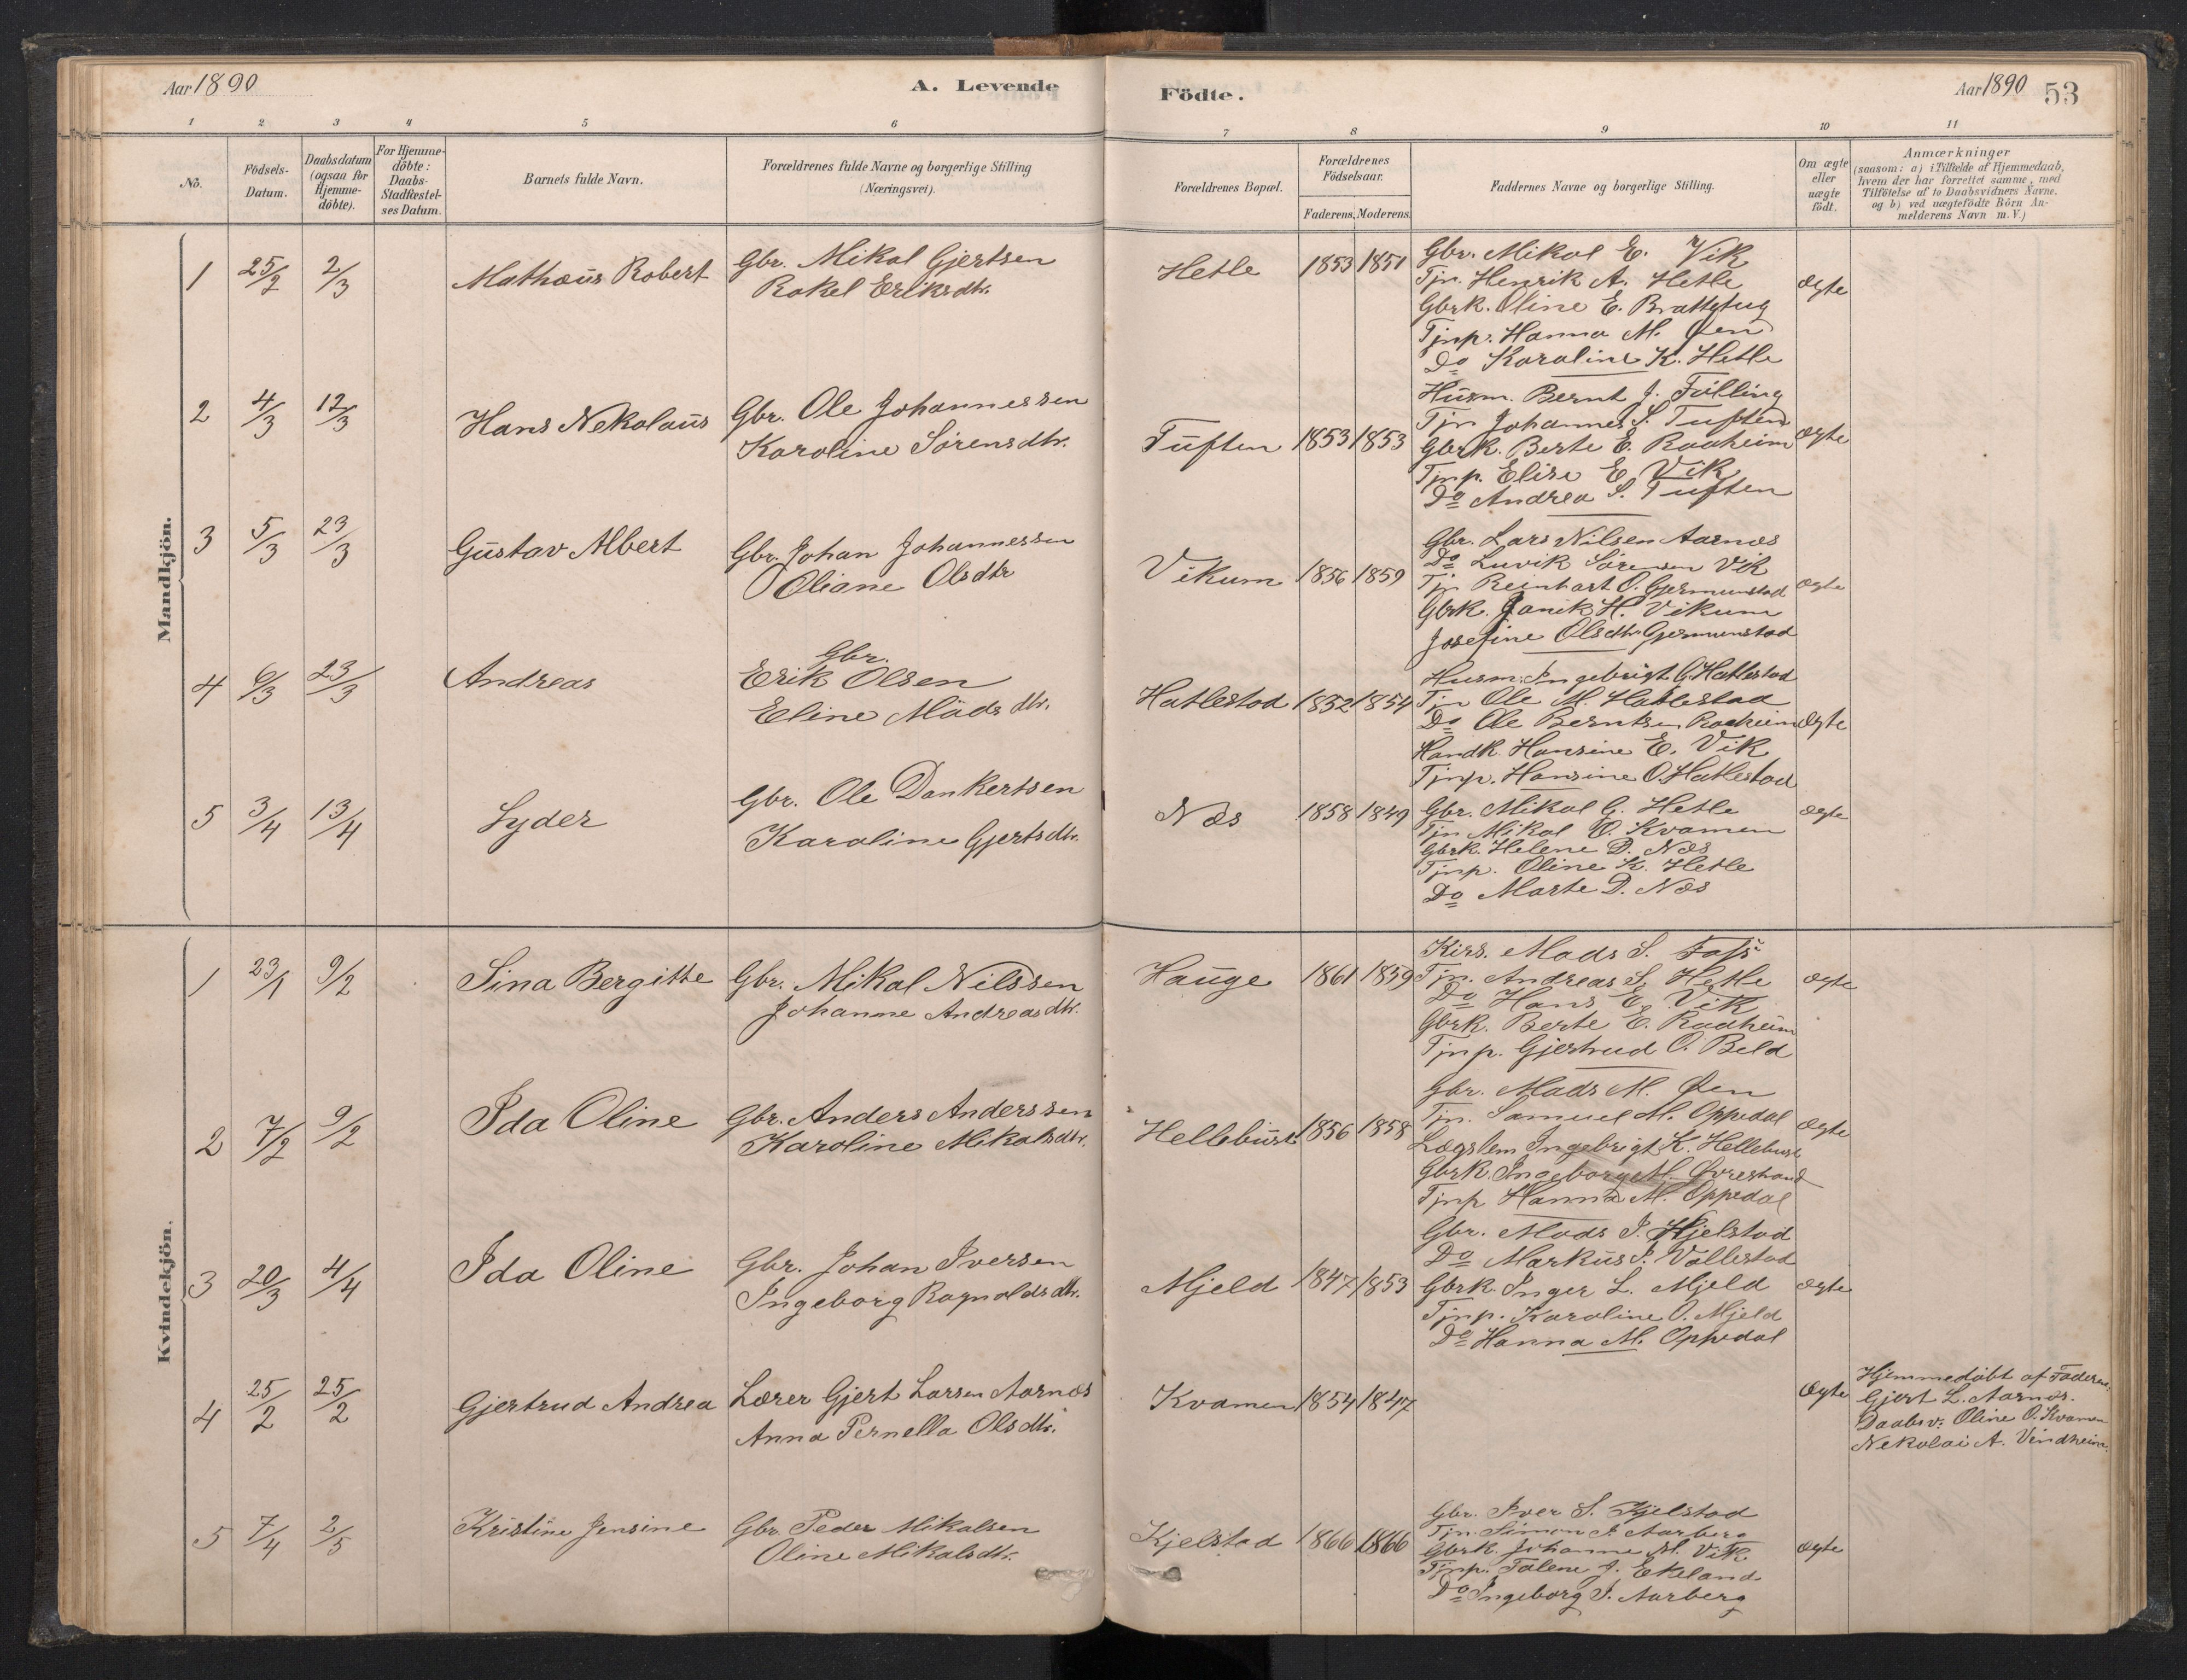 Aar 1890
A. Levende
Födte.
Aar 1890
53
1 2 3 4 5 6 7 8 9 10 11
No.
Födsels-
Datum.
Daabsdatum
(ogsaa for
Hjemme-
döbte).
For Hjemme-
döbte:
Daabs-
Stadfæstel-
ses Datum.
Barnets fulde Navn.
Forældrenes fulde Navne og borgerlige Stilling
(Næringsvei).
Forældrenes Bopæl.
Forældrenes
Födselsaar.
Faderens. Moderens.
Faddernes Navne og borgerlige Stilling.
Om ægte
eller
uægte
födt.
Anmærkninger
(saasom: a) i Tilfælde af Hjemmedaab,
hvem der har forrettet samme, med
Tilföielse af to Daabsvidners Navne.
og b) ved uægtefödte Börn An-
melderens Navn m. V.)
Mandkjön.
1 25/2 2/3 Mathæus Robert
Gbr. Mikal Gjertsen
Rakel Eriksdtr.
Hetle 1853 1851
Gbr. Mikal E. Vik
Tjn. Henrik A. Hetle
Gbrk. Oline E. Brattetug
Tjnp. Hanna M. Øen
Do Karoline K. Hetle
Ægte
2 4/3 12/3 Hans Nekolaus
Gbr. Ole Johannessen
Karoline Sörensdtr.
Tuften 1853 1853
Husm. Bernt J. Fulling
Tjn Johannes S. Tuften
Gbrk. Berte E. Raaheim
Tjnp. Elise E. Vik
Do Andrea S. Tuften
Ægte
3 5/3 23/3 Gustav Albert
Gbr. Johan Johannessen
Oliane Olsdtr
Vikum 1856 1859
Gbr. Lars Nilsen Aarnæs
Do Luvik Sörensen Vik
Tjn Reinhart O. Gjermunstad
Gbrk. Janik H. Vikum
Josefine Olsdtr Gjermunstad
Ægte
4 6/3 23/3 Andreas
Gbr.
Erik Olsen
Eline Madsdtr.
Hatlestad 1852 1854
Husm. Ingebrigt G. Hatlestad
Tjn Ole M. Hatlestad
Do Ole Berntsen Raaheim
Handk. Hansine E. Vik
Tjnp. Hansine O. Hatlestad
Ægte
5 3/4 13/4 Lyder
Gbr. Ole Dankertsen
Karoline Gjertsdtr.
Næs 1858 1849
Gbr. Mikal G. Hetle
Tjn Mikal O. Kvamen
Gbrk. Helene D. Næs
Tjnp. Oline K. Hetle
Do Marte D. Næs
Ægte
Kvindekjön.
1 23/1 9/2 Sina Bergitte
Gbr. Mikal Nilssen
Johanne Andreasdtr.
Hauge 1861 1859
Kirs. Mads S. Foss
Tjn. Andreas S. Hetle
Do Hans E. Vik
Gbrk. Berte E. Raaheim
Tjnp. Gjertrud O. Beld
Ægte
2 7/2 9/2 Ida Oline
Gbr. Anders Anderssen
Karoline Mikalsdtr.
Hellebust 1856 1858
Gbr. Mads M. Øen
Tjn. Samuel M. Oppedal
Lægslem Ingebrigt K. Hellebust
Gbrk. Ingeborg M. Øvrestrand
Tjnp Hanna M. Oppedal
Ægte
3 20/3 4/4 Ida Oline
Gbr. Johan Iversen
Ingeborg Ragnaldsdtr.
Mjeld 1847 1853
Gbr. Mads I. Hjelstad
Do Markus I. Vallestad
Gbrk. Inger L. Mjeld
Tjnp. Karoline O. Mjeld
Do Hanna M. Oppedal
Ægte
4 25/2 25/2 Gjertrud Andrea
Lærer Gjert Larsen Aarnæs
Anna Pernella Olsdtr.
Kvamen 1854 1847
Ægte
Hjemmedöbt af Faderen:
Gjert L. Aarnæs.
Daabsv: Oline O. Kvamen
Nekolai A. Vindheim.
5 7/4 2/5 Kristine Jensine
Gbr. Peder Mikalsen
Oline Mikalsdtr.
Kjelstad 1866 1866
Gbr. Iver S. Kjelstad
Tjn. Simon I. Aarberg
Gbrk. Johanne M. Vik
Tjnp. Talene J. Ekeland
Do Ingeborg I. Aarberg
Ægte